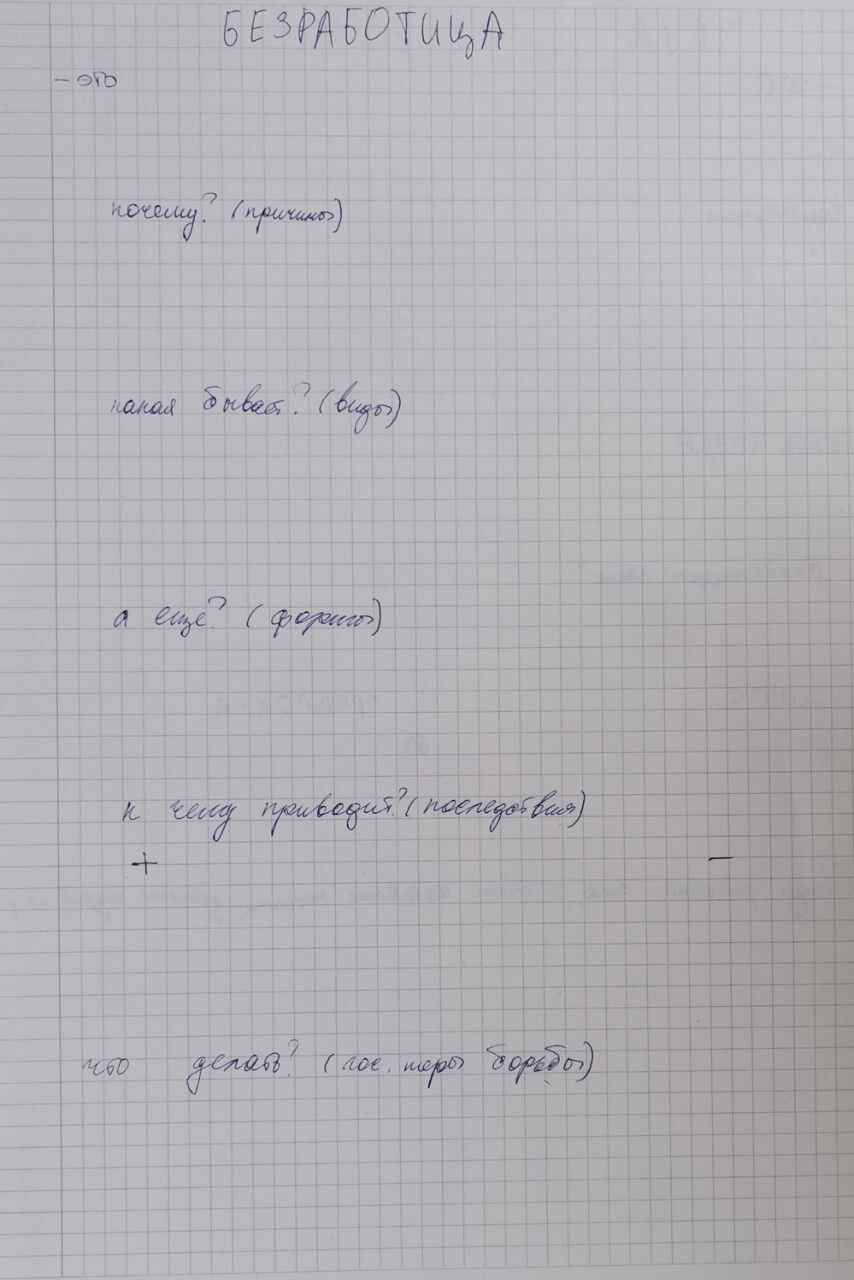 БЕЗРАБОТИЦА
– это
почему? (причины)
какая бывает? (виды)
а еще? (формы)
к чему приводит? (последствия)
+ –
что делать? (гос. меры борьбы)